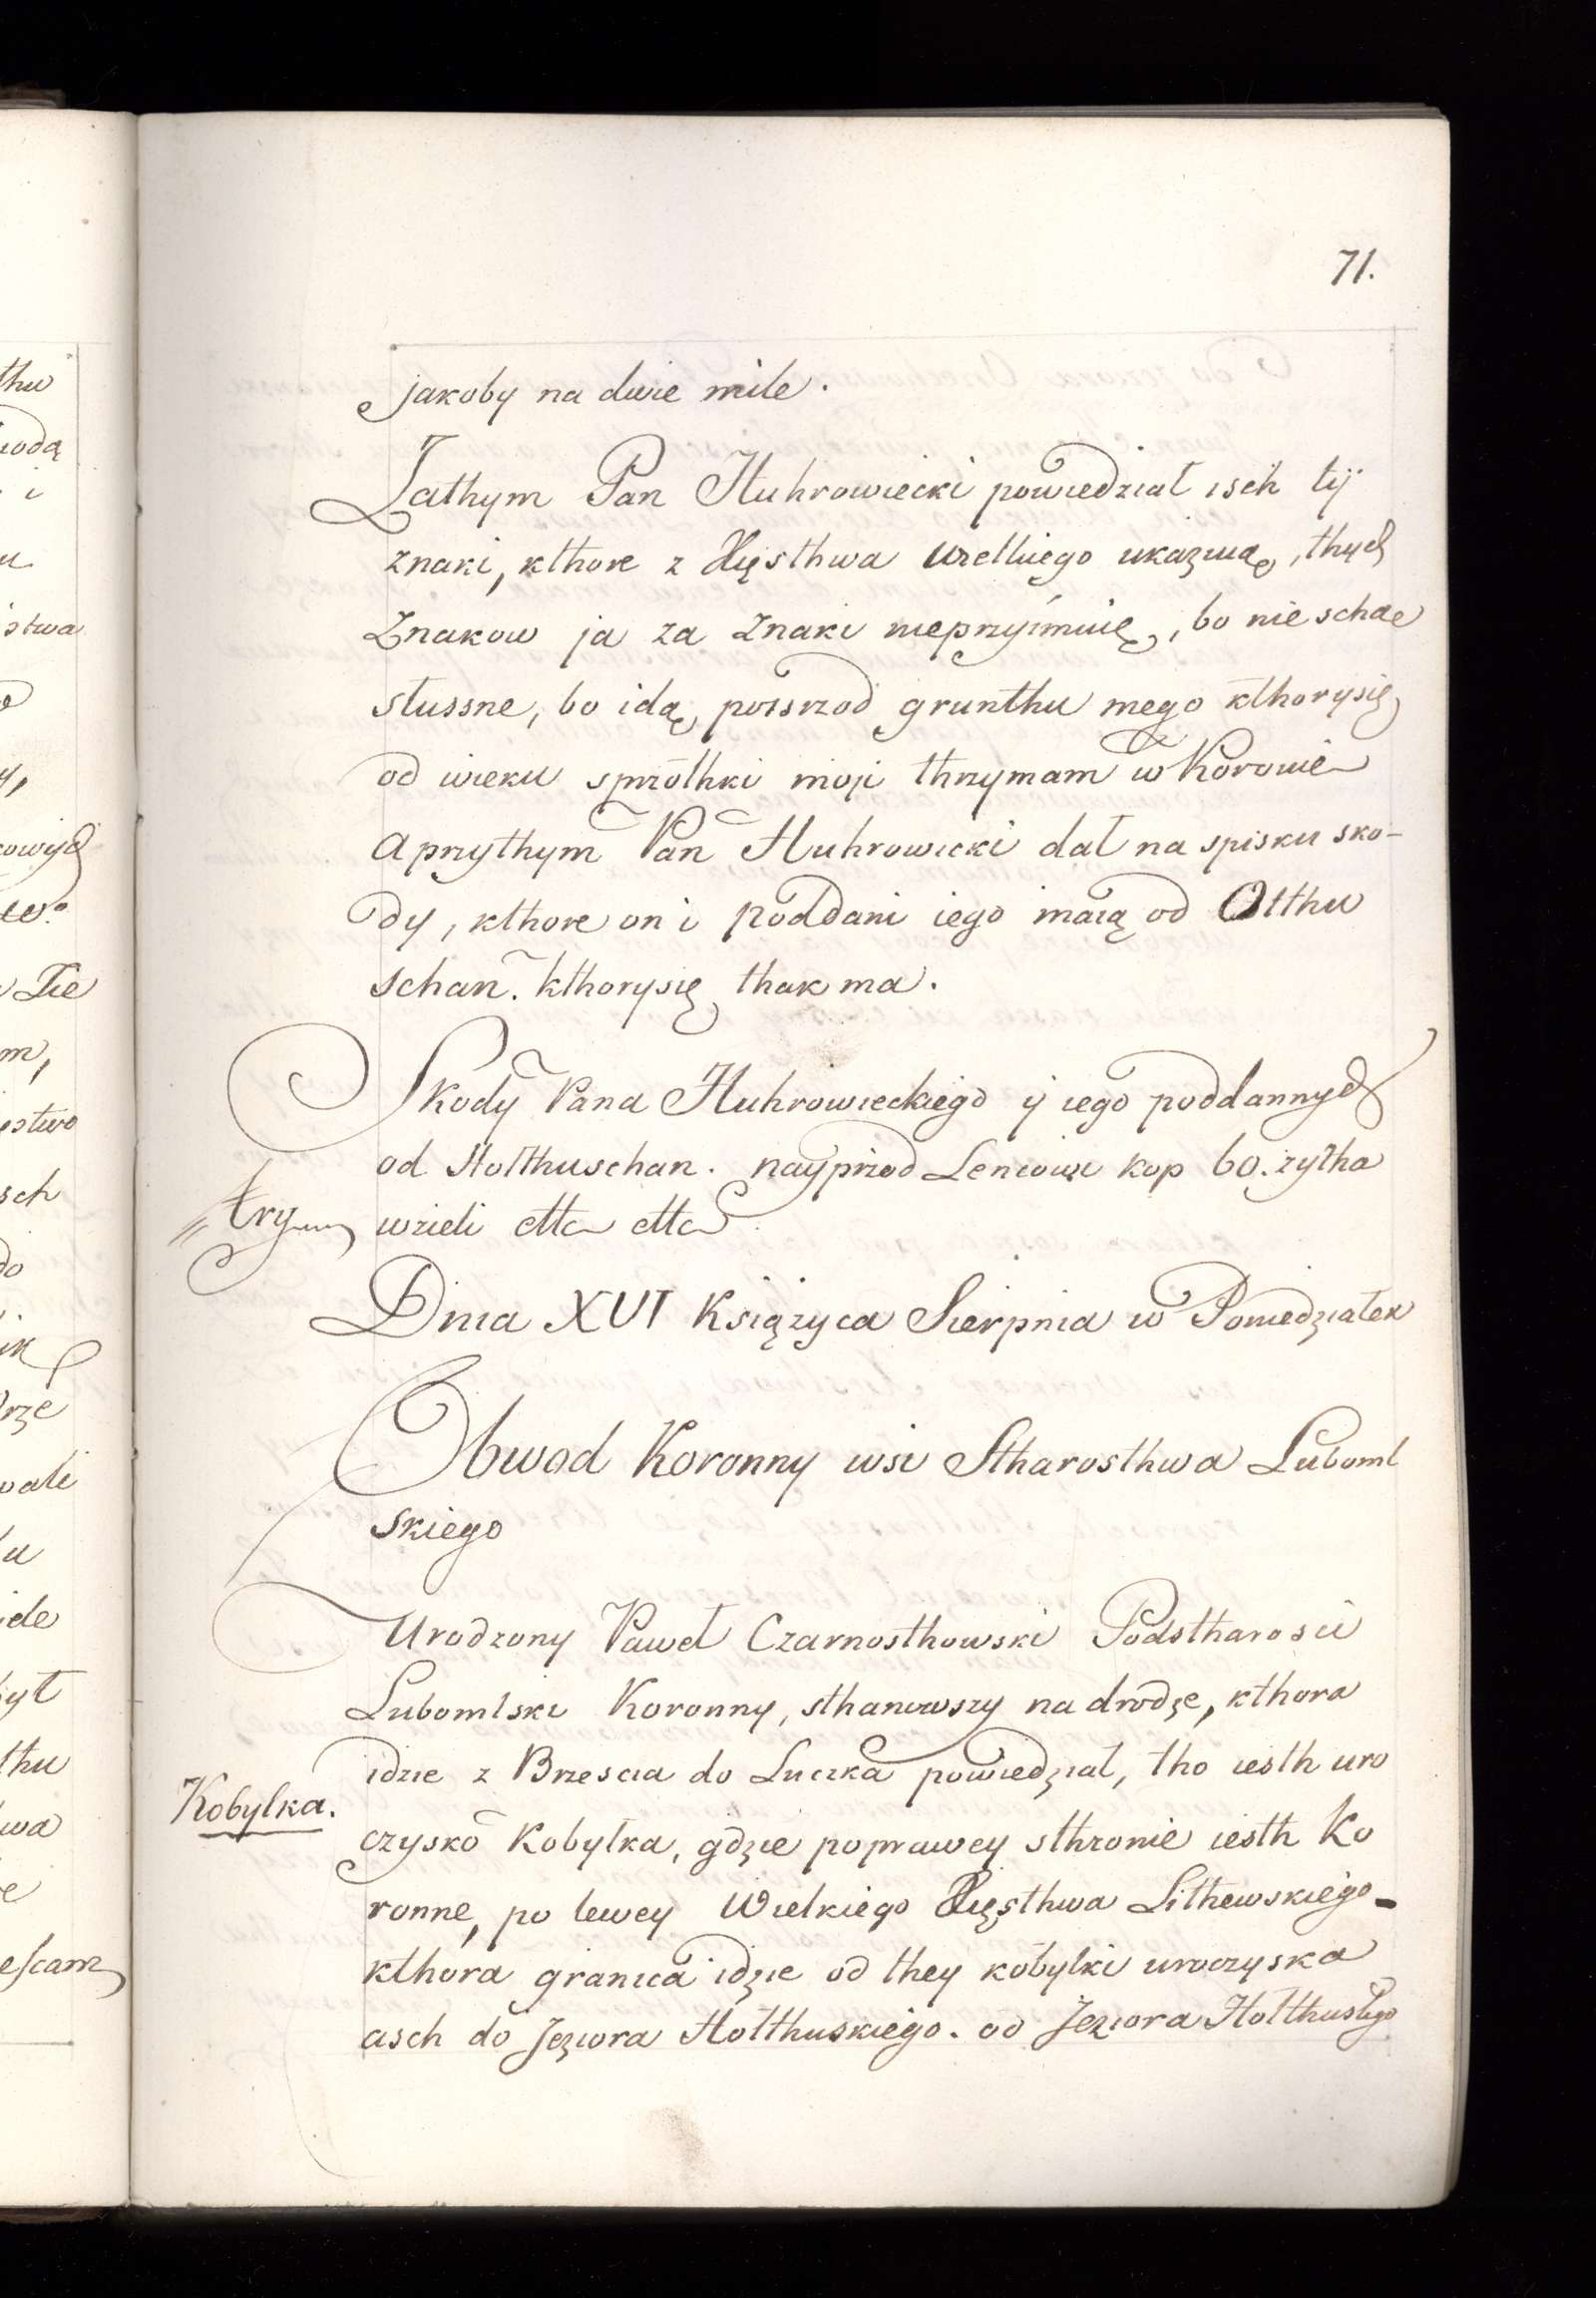 71.
jakoby na dwie mile.
Zathym Pan Huhrowiecki powiedział isch tÿ
znaki, kthore z Xięsthwa Wielkiego ukazuią, thych
Znakow ja za znaki nieprzyimuię, bo nie schae
słussne, bo idą posrzod grunthu mego kthorysię
od wieku sprzothki moji thrzymam w Koronie
a przythym Pan Huhrowicki dał na spisku sko-
dy, kthore on i poddani iego maią od Olthu
schan. kthorysię thak ma.
Skody Pana Huhrowieckiego ÿ iego poddannych
od Holthuschan. nayprzod Leniowi kop 60. zytha
try wzieli etta etta
Dnia XVI Książyca Sierpnia w Poniedziałek
Obwod Koronny wsi Stharosthwa Luboml
skiego
Urodzony Paweł Czarnosthowski Podstharosci
Lubomlski Koronny, sthanowszy na drodze, kthora
idzie z Brzescia do Luczka powiedział, tho iesth uro
Kobylka.
czysko Kobyłka, gdzie poprawey sthronie iesth Ko
ronne, po lewey Wielkiego Xięsthwa Lithewskiego
kthora granica idzie od they kobylki uroczyska
asch do Jeziora Holthuskiego. od Jeziora Holthuskiego